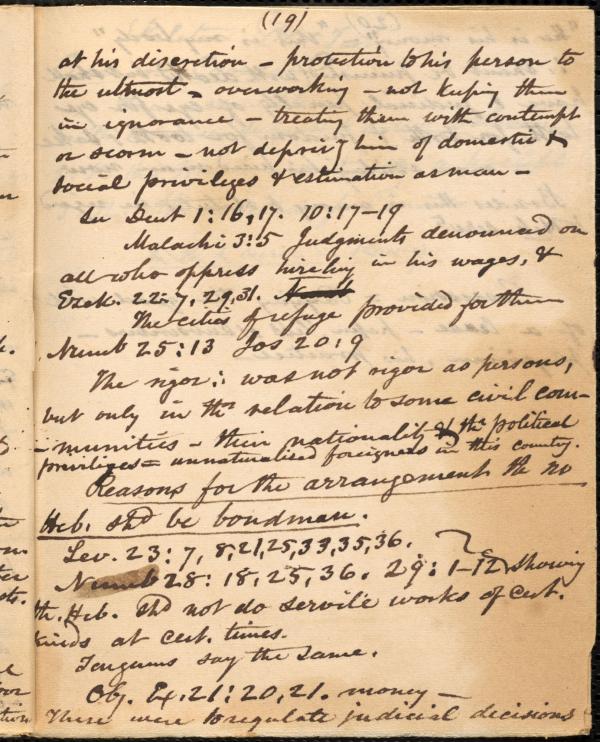 (19)
at his discretion – protection to his person to
the utmost – overworking – not keeping them
in ignorance – treating them with contempt
or scorn – not depriv'g him of domestic &
social privileges & estimation as man –
See Deut 1:16,17. 10:17–19
Malachi 3:5 Judgments denounced on
all who oppress hireling in his wages, &
Ezek. 22:7, 29,31.
The cities of refuge provided for them
Numb 25:13 Jos 20:9
The rigor was not rigor as persons,
but only in thr relation to some civil com-
-munities – their nationality & thr political
privileges = unnaturalised foreigners in this country.
Reasons for the arrangement tht no
Heb. shd be bondman.
Lev. 23:7, 8,21,25,33,35,36.
Numb 28:18,25,26. 29:1–12 showing
th. Heb. shd not do servile works of cert.
kinds at cert. times.
Targums say the same.
Obj. Ex. 21:20,21. money –
These were to regulate judicial decisions